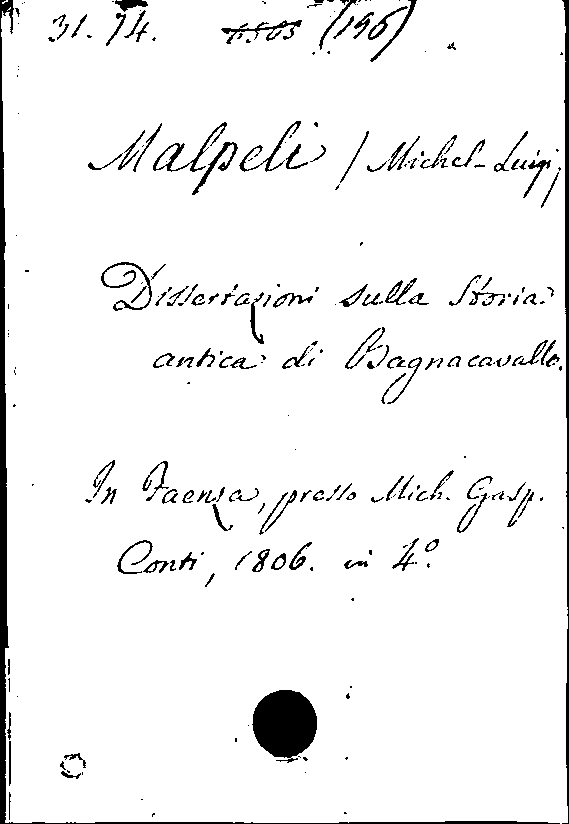 31. 74. (196)
Malpeli / Michel-Luigi,
Dissertazioni sulla Storia
antica di Bagnacavallo.
In Faenza, presso Mich. Gasp.
Conti, 1806. in 4º.